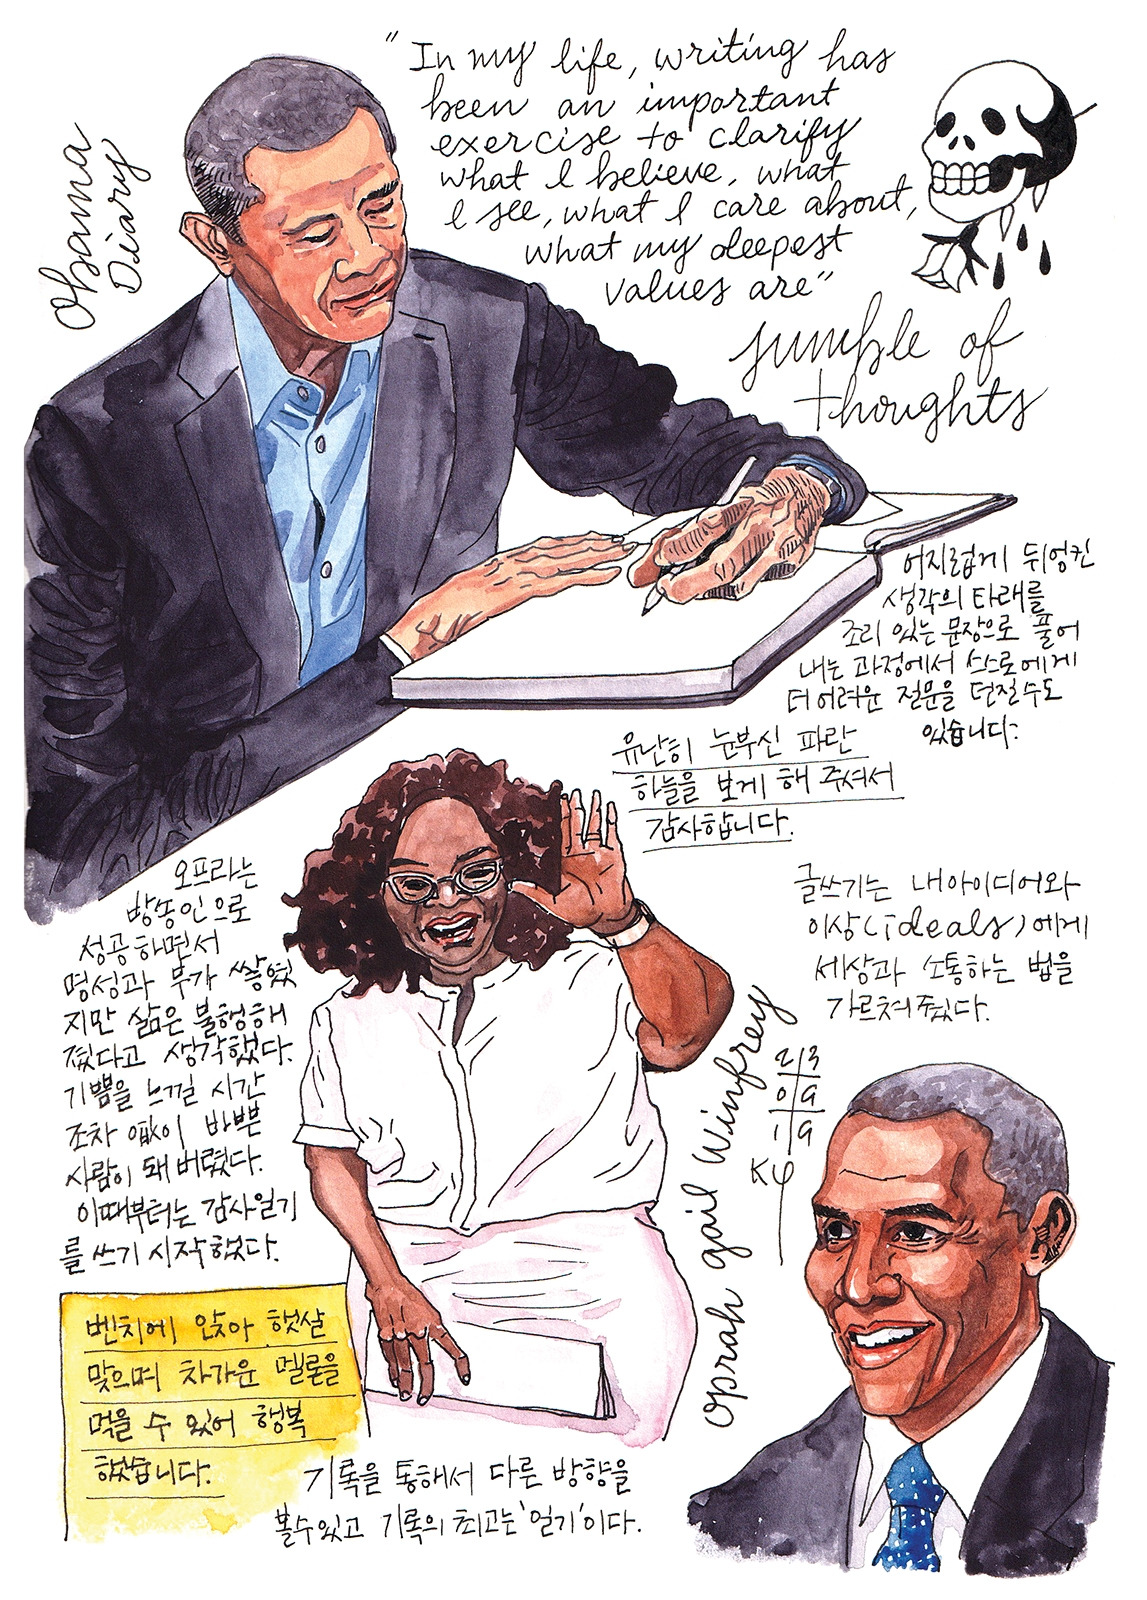 Obama
Diary
"In my life, writing has
been an important
exercise to clarify
what I believe, what
I see, what I care about,
what my deepest
values are"
jumble of
thoughts
어지럽게 뒤엉킨
생각의 타래를
조리 있는 문장으로 풀어
내는 과정에서 스스로에게
더 어려운 질문을 던질수도
있습니다.
유난히 눈부신 파란
하늘을 보게 해 주셔서
감사합니다.
오프라는
방송인으로
성공하면서
명성과 부가 쌓였
지만 삶은 불행해
졌다고 생각했다.
기쁨을 느낄 시간
조차 없이 바쁜
사람이 돼 버렸다.
이때부터는 감사일기
를 쓰기 시작했다.
글쓰기는 내아이디어와
이상(ideals)에게
세상과 소통하는 법을
가르쳐줬다.
oprah gail Winfrey
23
09
19
Ky
벤치에 앉아 햇살
맞으며 차가운 멜론을
먹을 수 있어 행복
했습니다.
기록을 통해서 다른 방향을
볼수있고 기록의 최고는 '일기'이다.